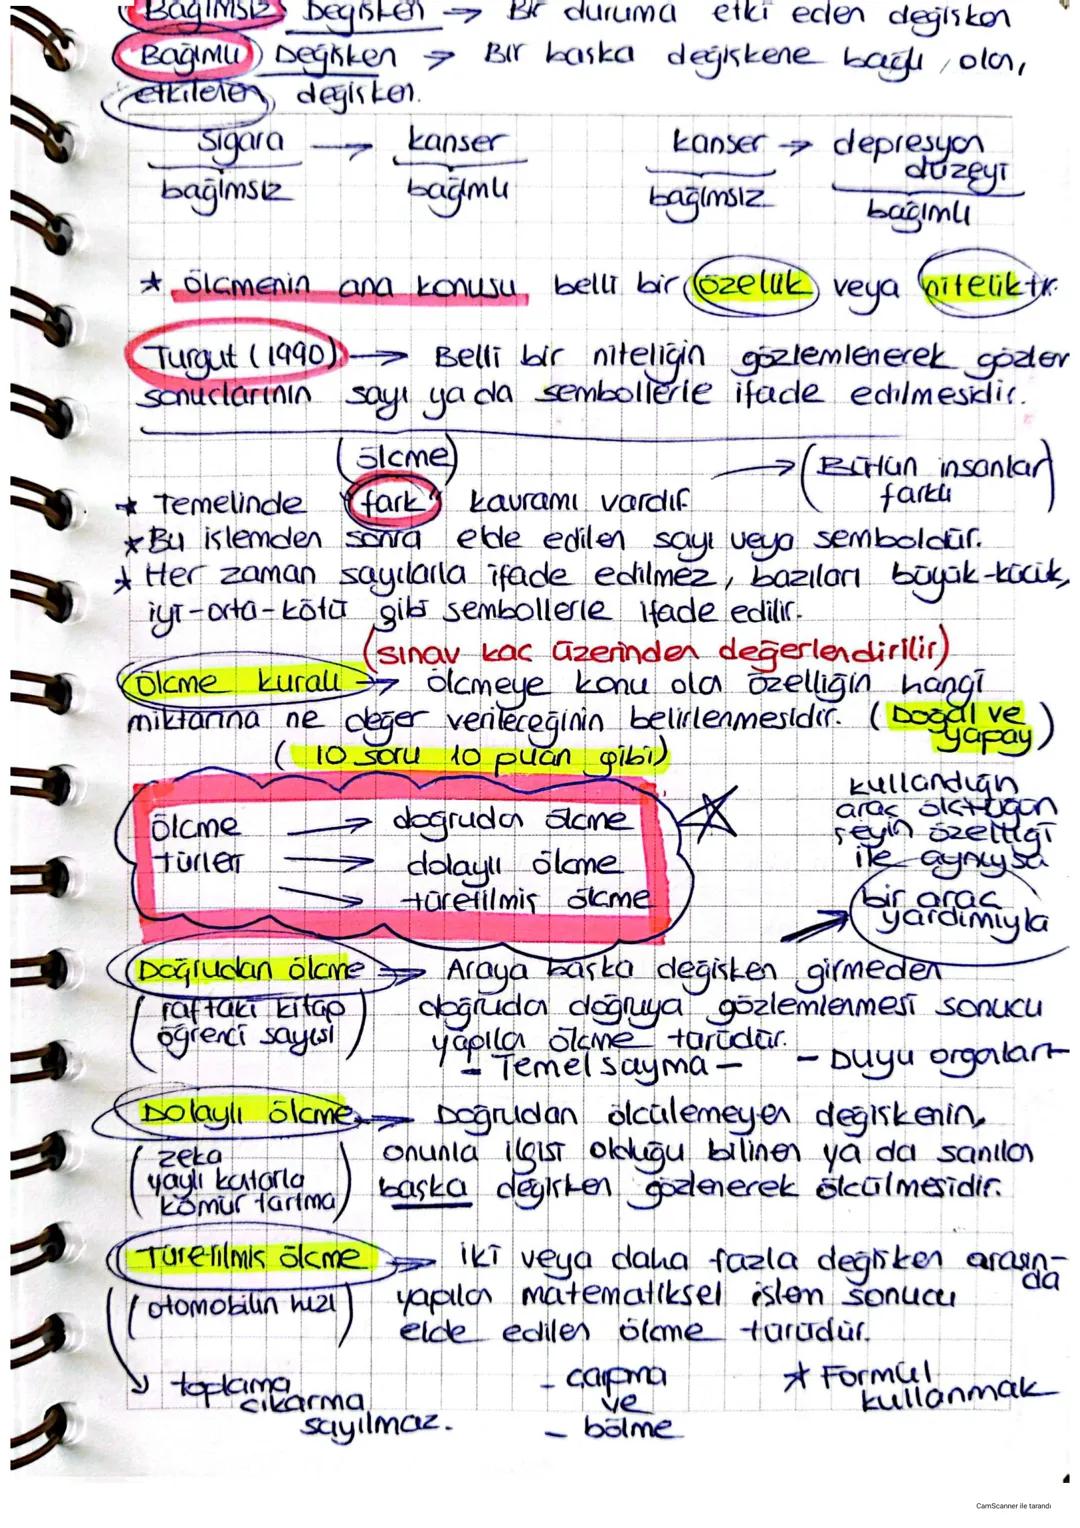 Bağımsız Değişken → Bir duruma etki eden değişken
Bağımlı Değişken → Bir başka değişkene bağlı, olan,
etkilenen değişken.
Sigara → kanser
bağımsız bağımlı
kanser → depresyon düzeyi
bağımsız bağımlı
* ölçmenin ana konusu belli bir özellik veya niteliktir.
Turgut (1990) → Belli bir niteliğin gözlemlenerek gözlem
sonuçlarının sayı ya da sembollerle ifade edilmesidir.
(ölçme)
* Temelinde "fark" kavramı vardır. → (Bütün insanlar farklı)
* Bu işlemden sonra elde edilen sayı veya semboldür.
* Her zaman sayılarla ifade edilmez, bazıları büyük-küçük,
iyi-orta-kötü gibi sembollerle ifade edilir.
(sınav kaç üzerinden değerlendirilir)
Ölçme kuralı → ölçmeye konu olan özelliğin hangi
miktarına ne değer verileceğinin belirlenmesidir. (Doğal ve yapay)
(10 soru 10 puan gibi)
ölçme türleri
→ doğrudan ölçme
→ dolaylı ölçme
→ türetilmiş ölçme
kullandığın
araç ölçtüğün
şeyin özelliği
ile aynıysa
bir araç
yardımıyla
Doğrudan ölçme → Araya başka değişken girmeden
(raftaki kitap doğrudan doğruya gözlemlenmesi sonucu
öğrenci sayısı) yapılan ölçme türüdür.
- Temel sayma - - Duyu organları
Dolaylı ölçme → Doğrudan ölçülemeyen değişkenin,
(zeka onunla ilgisi olduğu bilinen ya da sanılan
yaylı kantarla başka değişken gözlenerek ölçülmesidir.
kömür tartma)
Türetilmiş ölçme → iki veya daha fazla değişken arasında
(otomobilin hızı) yapılan matematiksel işlem sonucu
elde edilen ölçme türüdür.
toplama
çıkarma
sayılmaz.
- çarpma
ve
- bölme
* Formül
kullanmak
CamScanner ile tarandı